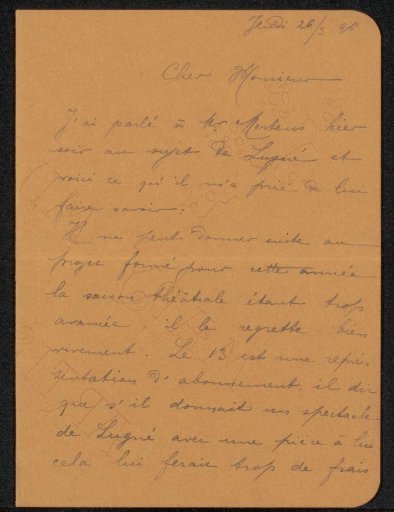 Jeudi 26/3 98
Cher Monsieur
J'ai parlé à Mr Mertens hier
soir au sujet de Lugné et
voici ce qu'il m'a prié de lui
faire savoir:
Il ne peut donner suite au
projet formé pour cette année
la saison théâtrale étant trop
avancée. il le regrette bien
vivement. Le 13 est une représ
sentation d'abonnement, il dit
que s'il donnait un spectacle
de Lugné avec une pièce à lui
cela lui ferait trop de frais